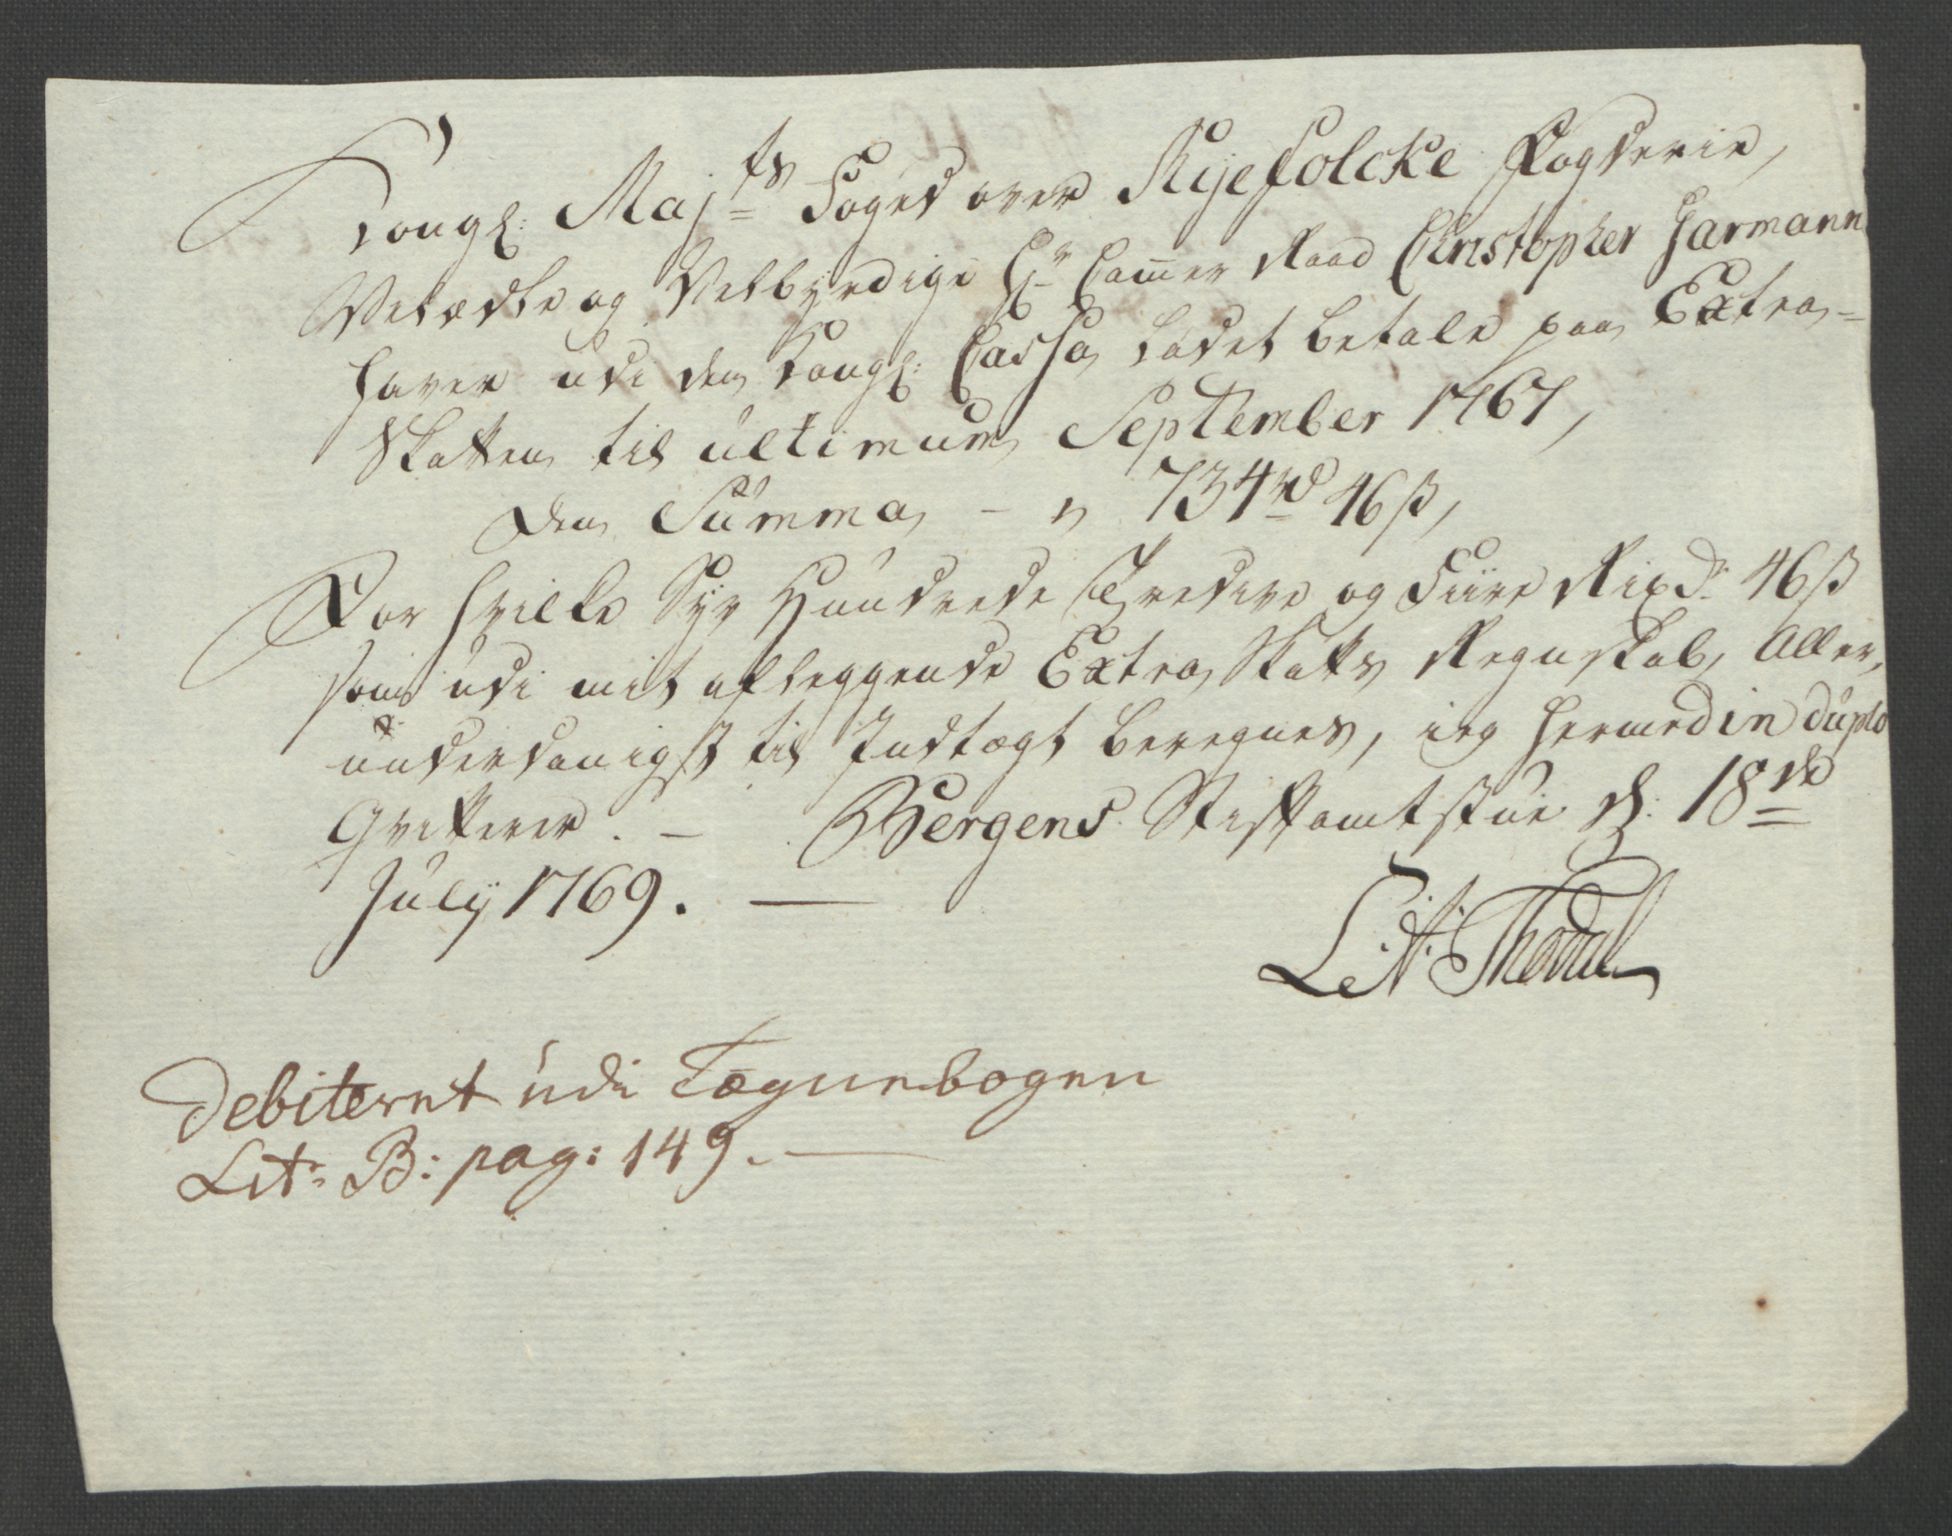 Kongl: Maj:ts Foged over Ryefolcke Fogderie,
Velædle og Velbyrdige Hr Cam̄er Raad Christopher Harmann
haver udi den Kongl: Cassa ladet betale paa Extra-
Skatten til ultimum September 1767,
den Summa - " 734 rd 46 ß,
For hvilke Syv Hundrede Tredive og Fiire Rixdr 46 ß
som udi mit aflæggende Extra Skatts Regnskab, Aller,
underdanigst til Indtægt beregnes, ieg hermed in duplo
Qvitterer. - Bergens Stiftamtstue d: 18de
July 1769. —
L: A: Thodal
Debiteret udi Tægnebogen
Litr B: pag: 149. —